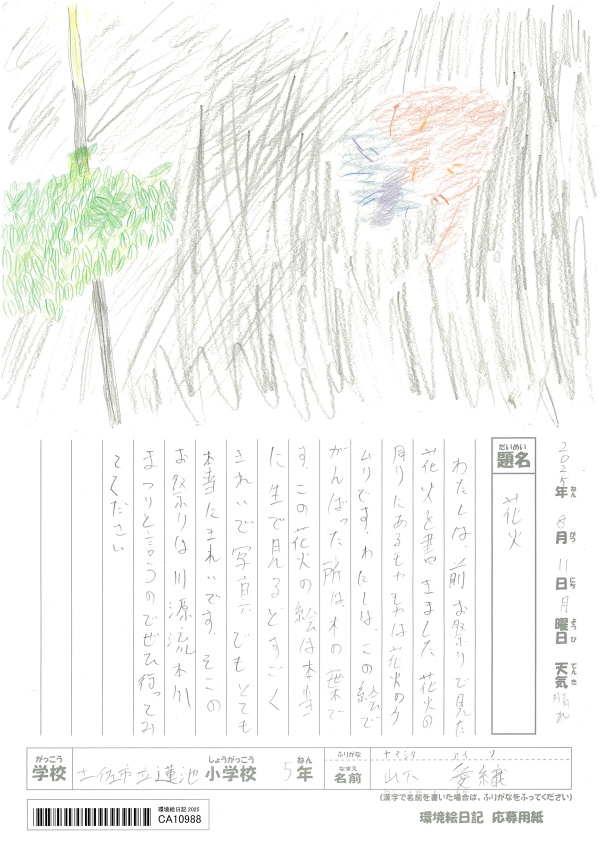 2025年 8月 11日 月曜日 天気 晴れ
ねん がつ にち ようび てんき
だいめい
題名
花火
わたしは、前お祭りで見た
花火を書きました。花火の
周りにあるモヤモヤは花火のケ
ムリです。わたしは、この絵で
がんばった所は、木の葉で
す。この花火の絵は本当
に生で見るとすごく
きれいで写真でもとても
本当にきれいです。そこの
お祭りは川源流木外
まつりと言うのでぜひ行ってみ
てください
がっこう
学校
土佐市立蓮池
しょうがっこう
小学校
5
ねん
年
ふりがな
ヤマシタ アイリ
なまえ
名前
山下 愛織
(漢字で名前を書いた場合は、ふりがなをふってください)
環境絵日記 2025
CA10988
環境絵日記 応募用紙